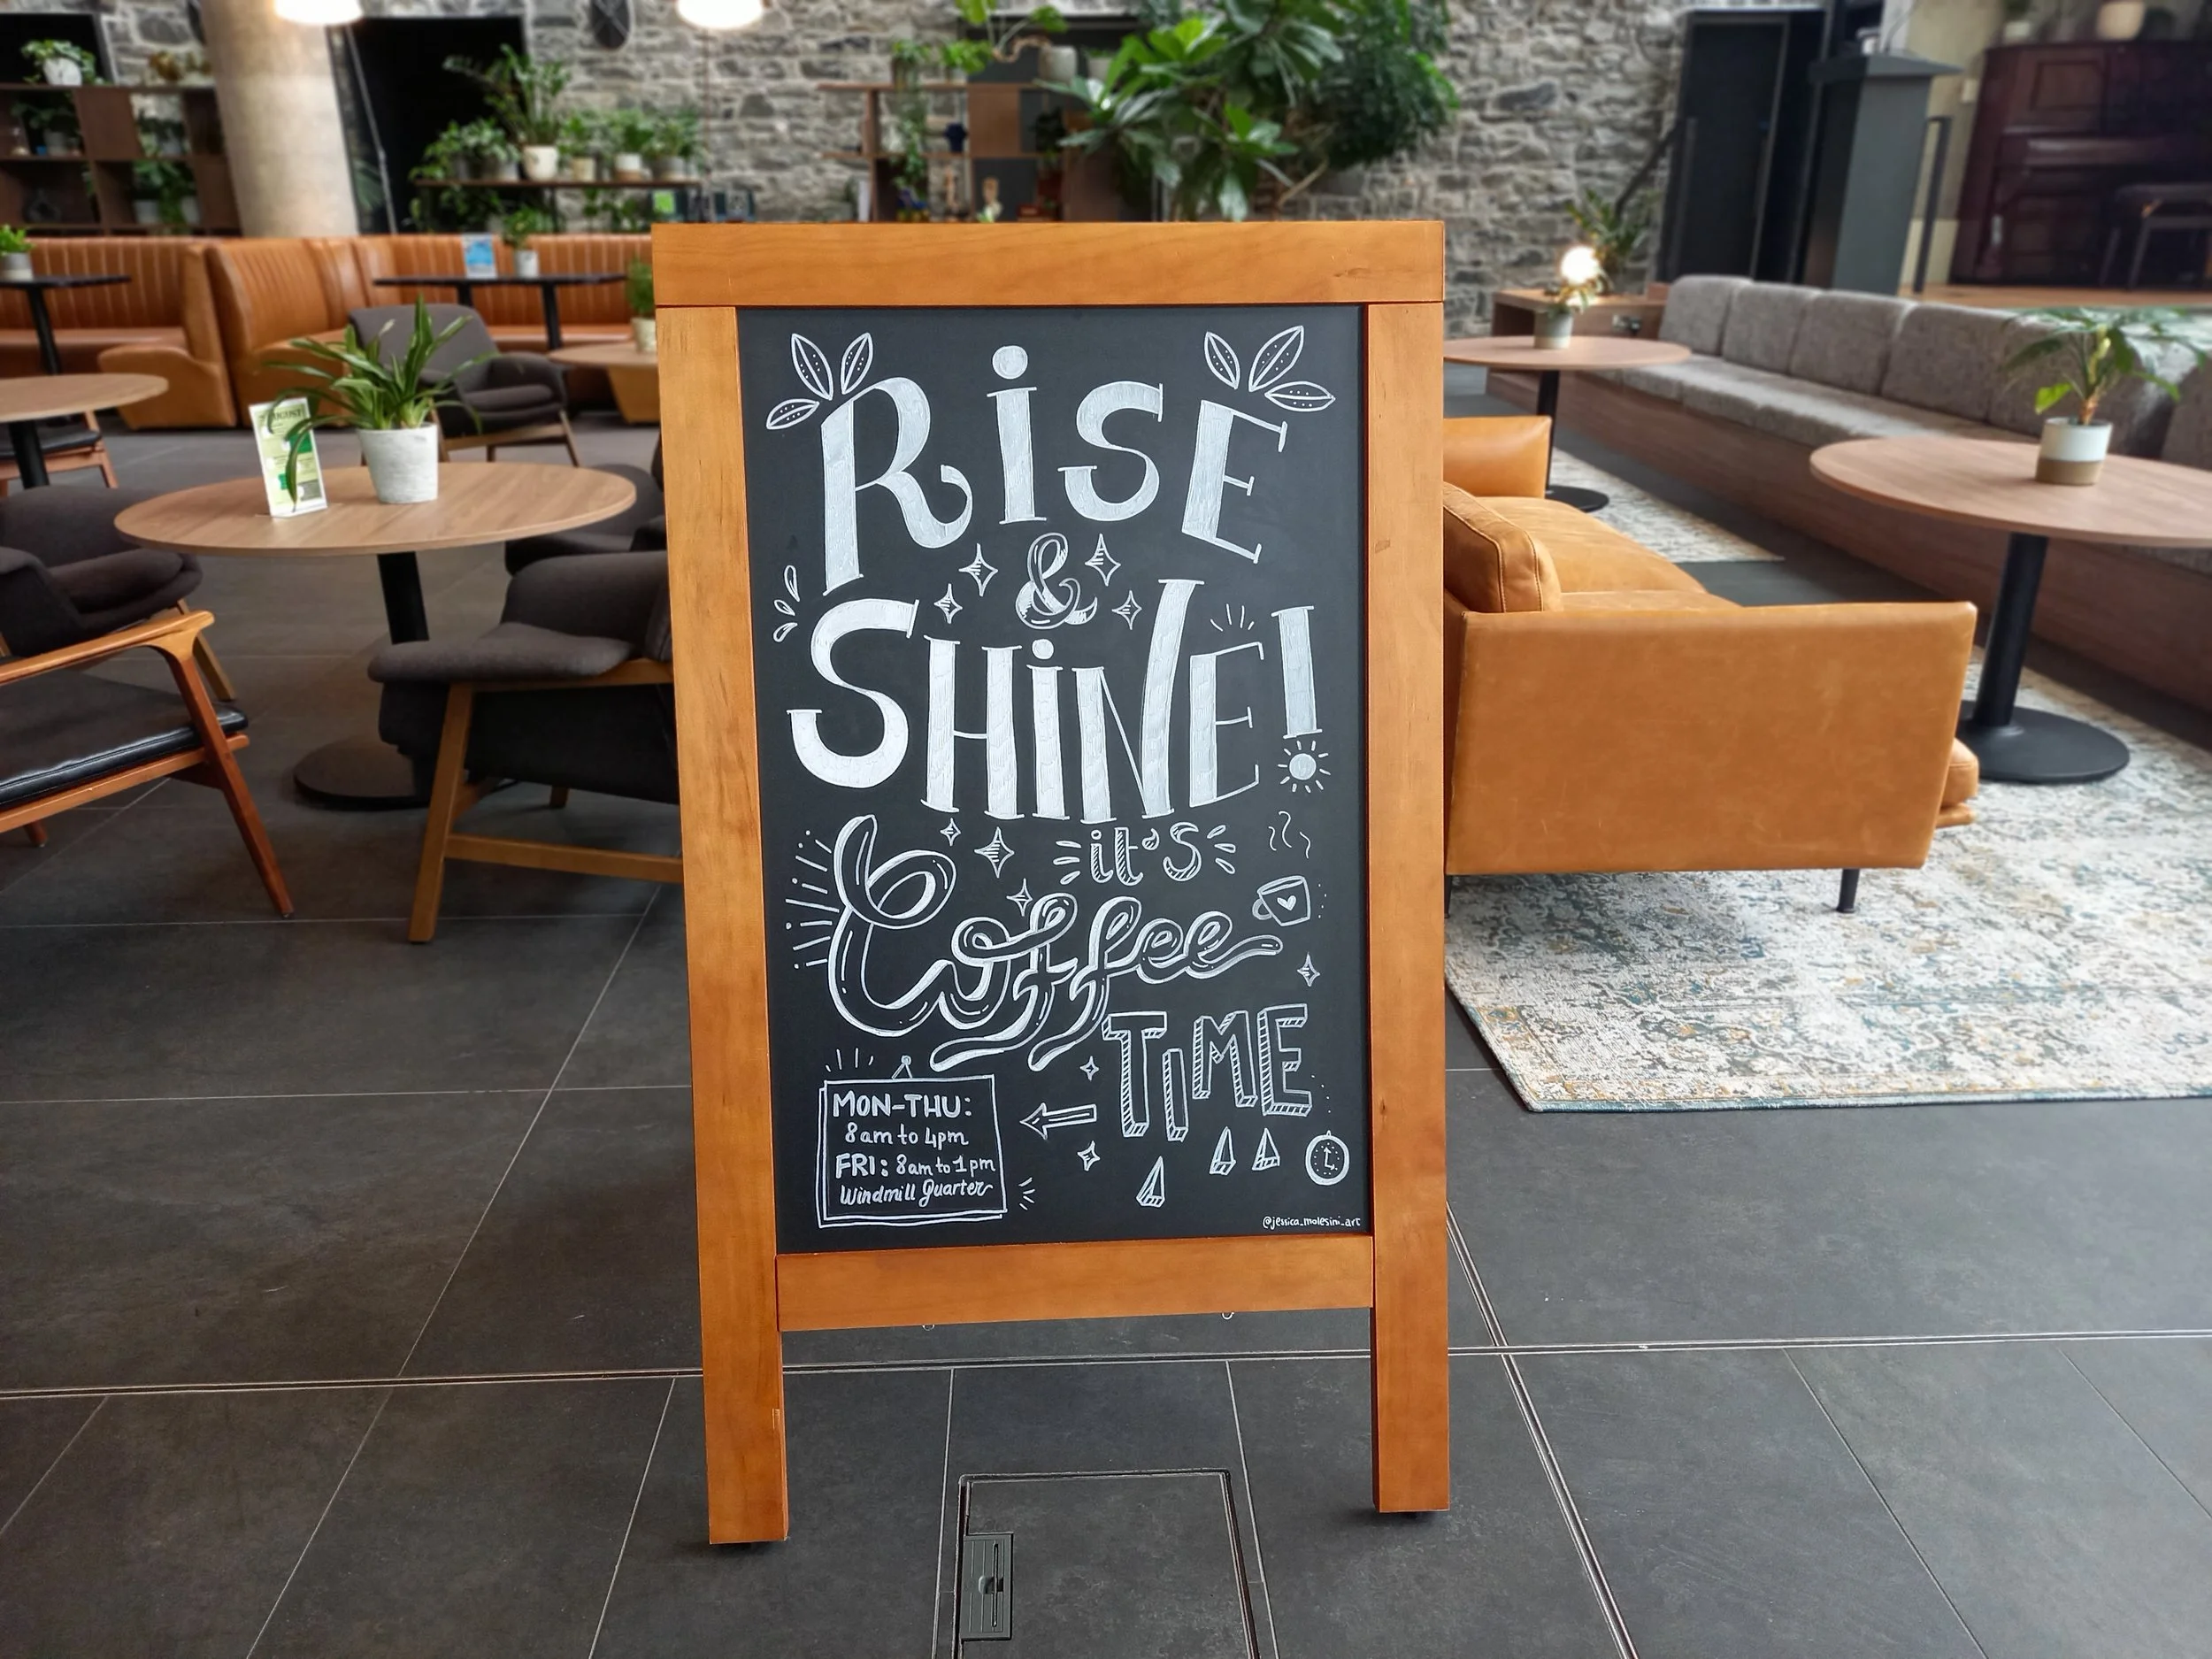 RiSE
&
SHiNE!
it's
Coffee
TIME
MON-THU:
8am to 4pm
FRI: 8am to 1pm
Windmill Quarter
@jessica_molesini_art